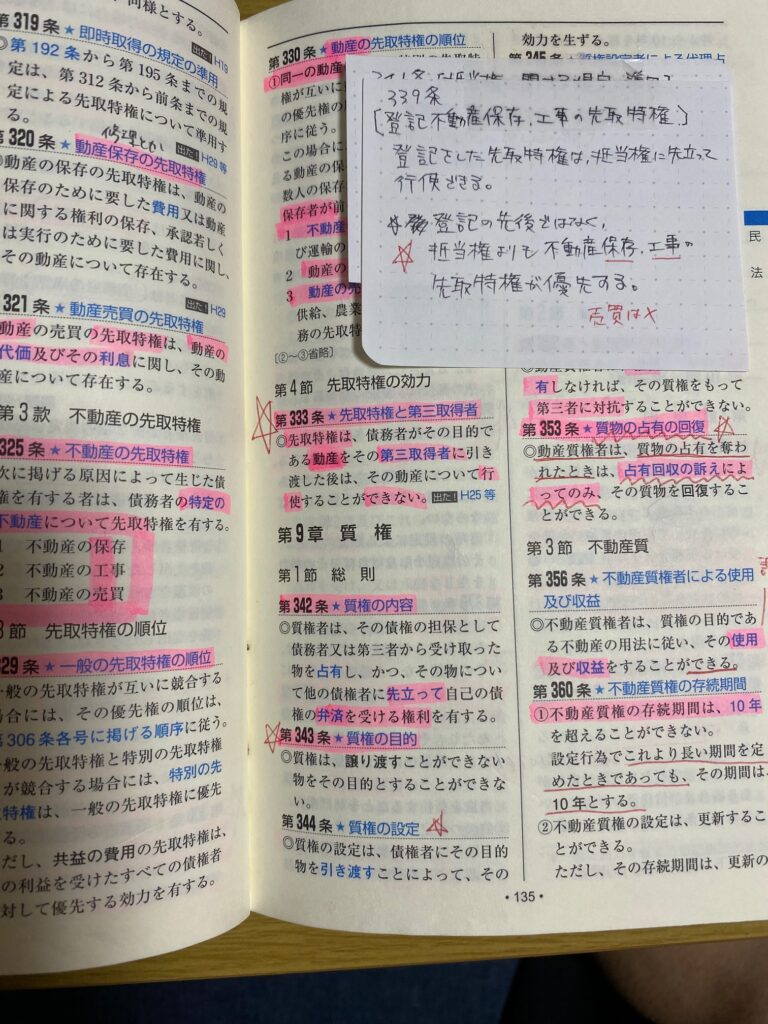 同様とする。
第319条 ★即時取得の規定の準用
◎第192条から第195条までの規 出た! H19
定は、第312条から前条までの規
定による先取特権について準用す
る。
修理とか
第320条 ★動産保存の先取特権 出た! H29等
◎動産の保存の先取特権は、動産の
保存のために要した費用又は動産
に関する権利の保存、承認若しく
は実行のために要した費用に関し、
その動産について存在する。
321条 ★動産売買の先取特権 出た! H29
動産の売買の先取特権は、動産の
代価及びその利息に関し、その動
産について存在する。
第3款 不動産の先取特権
325条 ★不動産の先取特権
次に掲げる原因によって生じた債
権を有する者は、債務者の特定の
不動産について先取特権を有する。
1 不動産の保存
2 不動産の工事
3 不動産の売買
3節 先取特権の順位
329条 ★一般の先取特権の順位
一般の先取特権が互いに競合する
場合には、その優先権の順位は、
第306条各号に掲げる順序に従う。
一般の先取特権と特別の先取特権
が競合する場合には、特別の先
取特権は、一般の先取特権に優先
する。
ただし、共益の費用の先取特権は、
の利益を受けたすべての債権者
対して優先する効力を有する。
第330条 ★動産の先取特権の順位
①同一の動産
権が互いに
の優先権の
序に従う。
この場合に
る動産の保
数人の保存
保存者が前
1 不動産
び運輸の
2 動産の
3 動産の売
供給、農業
務の先取特
〔②~③省略〕
第4節 先取特権の効力
第333条 ★先取特権と第三取得者
◎先取特権は、債務者がその目的で
ある動産をその第三取得者に引き
渡した後は、その動産について行
使することができない。 出た! H25等
第9章 質権
第1節 総則
第342条 ★質権の内容
◎質権者は、その債権の担保として
債務者又は第三者から受け取った
物を占有し、かつ、その物につい
て他の債権者に先立って自己の債
権の弁済を受ける権利を有する。
第343条 ★質権の目的
◎質権は、譲り渡すことができない
物をその目的とすることができな
い。
第344条 ★質権の設定
◎質権の設定は、債権者にその目的
物を引き渡すことによって、その
効力を生ずる。
第345条 ★質権設定者による代理占
339条
[登記不動産保存、工事の先取特権]
登記をした先取特権は、抵当権に先立って
行使できる。
登記の先後ではなく、
☆ 抵当権よりも不動産保存、工事の
先取特権が優先する。
売買は×
有しなければ、その質権をもって
第三者に対抗することができない。
第353条 ★質物の占有の回復 ☆
◎動産質権者は、質物の占有を奪わ
れたときは、占有回収の訴えによ
ってのみ、その質物を回復するこ
とができる。
第3節 不動産質
第356条 ★不動産質権者による使用
及び収益
◎不動産質権者は、質権の目的であ
る不動産の用法に従い、その使用
及び収益をすることができる。
第360条 ★不動産質権の存続期間
①不動産質権の存続期間は、10年
を超えることができない。
設定行為でこれより長い期間を定
めたときであっても、その期間は、
10年とする。
②不動産質権の設定は、更新するこ
とができる。
ただし、その存続期間は、更新の
民法
・135・